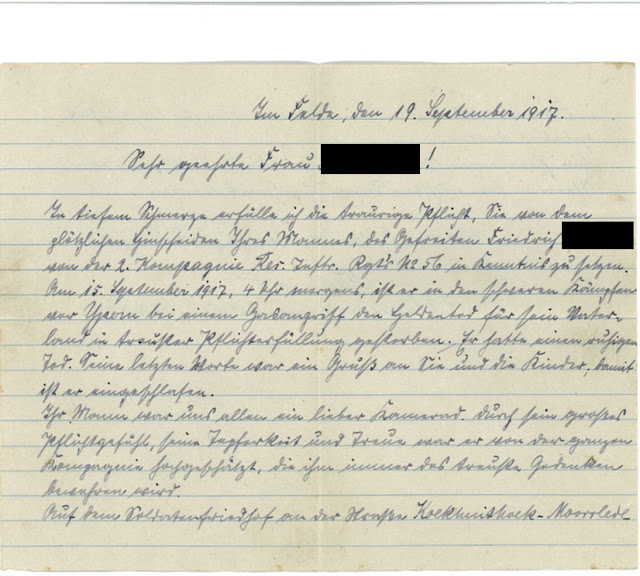 Im Felde, den 19. September 1917.
Sehr geehrte Frau !
In tiefem Schmerze erfülle ich die traurige Pflicht, Sie von dem
plötzlichen Hinscheiden Ihres Mannes, des Gefreiten Friedrich
von der 2. Kompagnie Res. Inftr. Rgt's No 56 in Kenntnis zu setzen.
Am 15. September 1917, 4 Uhr morgens, ist er in den schweren Kämpfen
vor Ypern bei einem Gasangriff den Heldentod für sein Vater-
land in treuster Pflichterfüllung gestorben. Er hatte einen ruhigen
Tod. Seine letzten Worte war ein Gruß an Sie und die Kinder, damit
ist er eingeschlafen.
Ihr Mann war uns allen ein lieber Kamerad. Durch sein großes
Pflichtgefühl, seine Tapferkeit und Treue war er von der ganzen
Kompagnie hochgeschätzt, die ihm immer das treuste Gedenken
bewahren wird.
Auf dem Soldatenfriedhof an der Straße